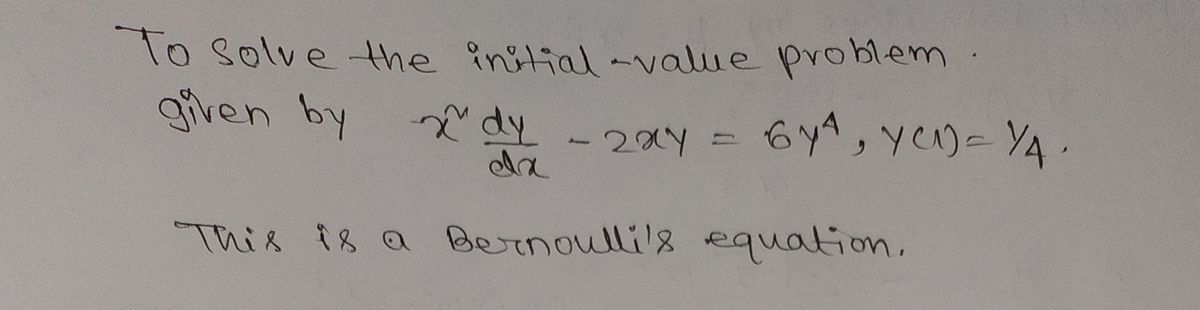 To solve the initial-value problem.
given by x² dy/dx - 2xy = 6y⁴, y(1) = 1/4.
This is a Bernoulli's equation.